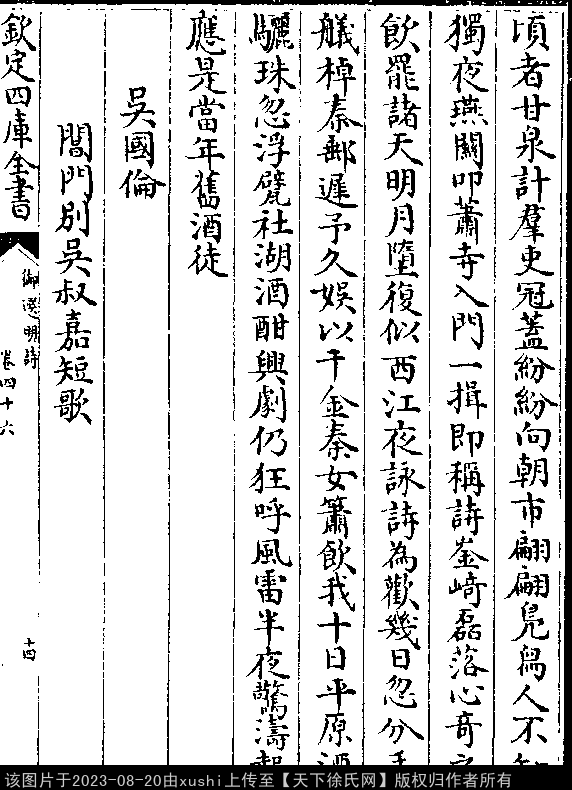 頃者甘泉計羣吏冠蓋紛紛向朝市翩翩凫舄人不
獨夜燕關叩蕭寺入門一揖即稱詩崟﨑磊落心竒
飲罷諸天明月墮復似西江夜詠詩為歡幾日忽分
艤棹奉郵遲予久娱以千金秦女簫飲我十日平原
驪珠忽浮甓社湖酒酣興劇仍狂呼風雷半夜驚濤
應是當年舊酒徒
吳國倫
閶門别吳叔嘉短歌
欽定四庫全書
御選明詩
卷四十六
十四
该图片于2023-08-20由xushi上传至【天下徐氏网】版权归作者所有